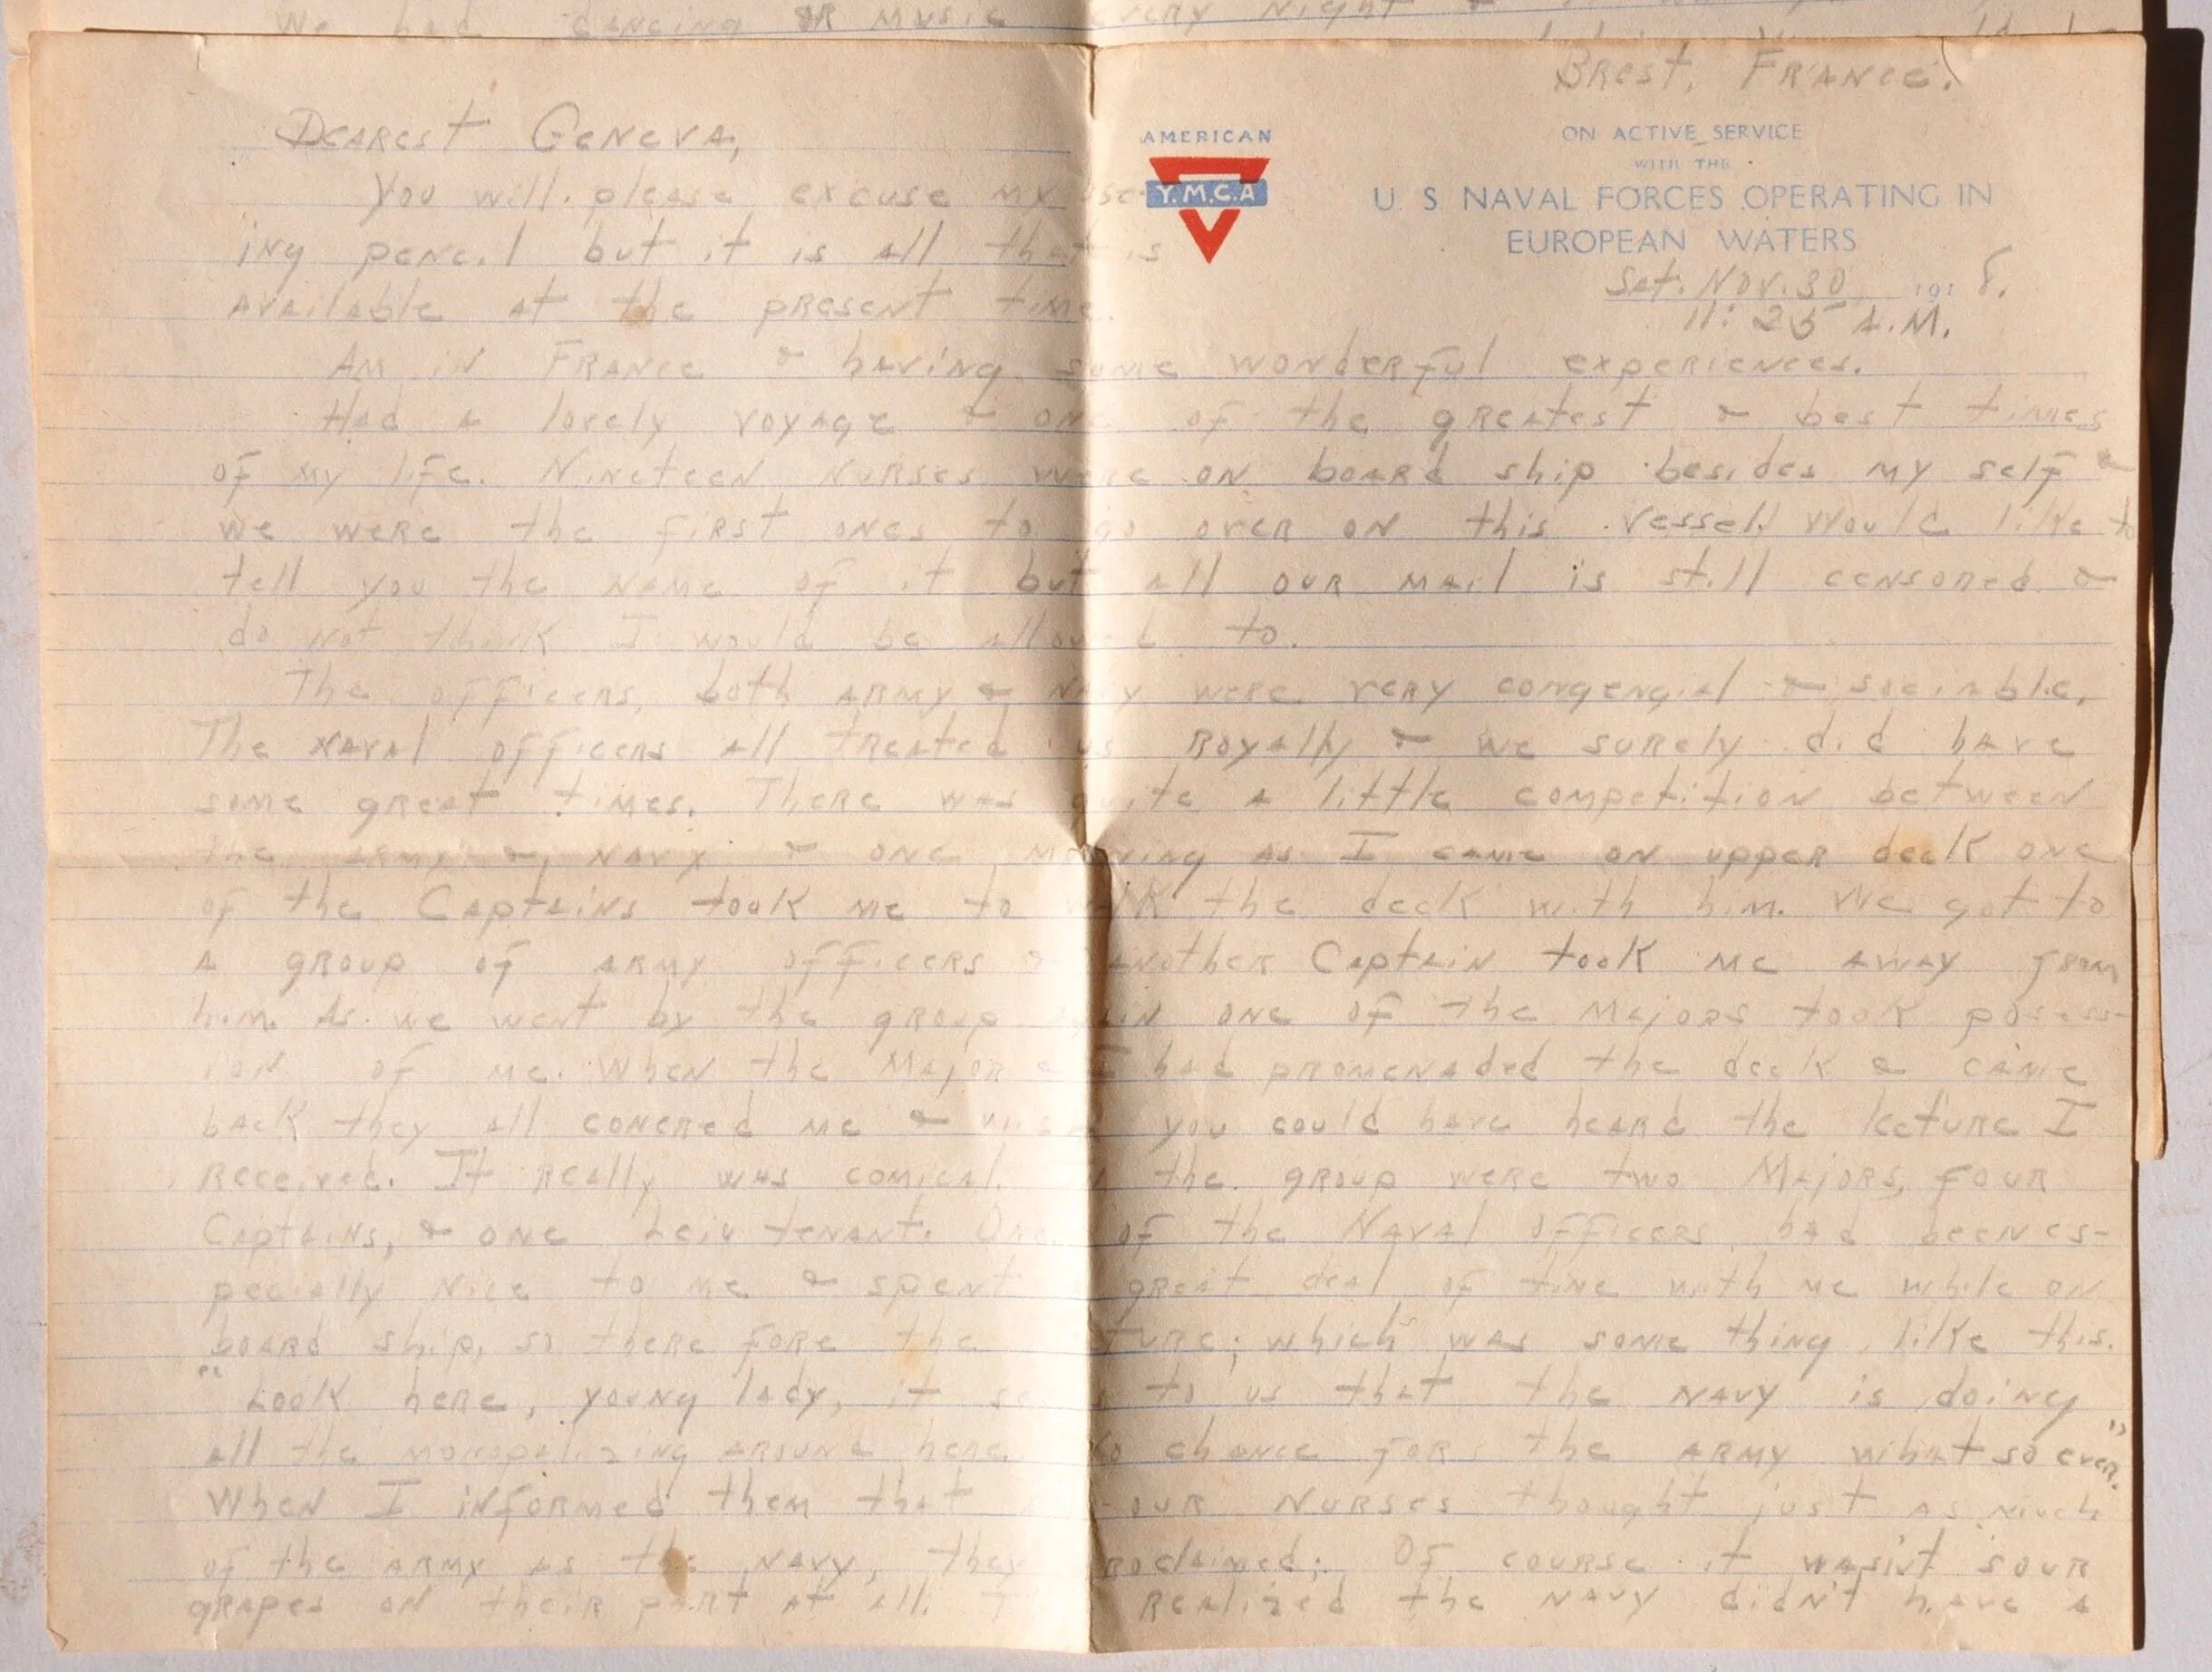 We had dancing or music every night &
Brest, France.
AMERICAN
Y.M.C.A
ON ACTIVE SERVICE
WITH THE
U. S. NAVAL FORCES OPERATING IN
EUROPEAN WATERS
Sat. Nov. 30, 1918.
11:25 A.M.
Dearest Geneva,
You will please excuse my use-
ing pencil but it is all that is
available at the present time.
Am in France & having some wonderful experiences.
Had a lovely voyage & one of the greatest & best times
of my life. Nineteen nurses were on board ship besides my self &
we were the first ones to go over on this vessel. Would like to
tell you the name of it but all our mail is still censored &
do not think I would be allowed to.
The officers, both army & navy were very congengial & sociable.
The naval officers all treated us royally & we surely did have
some great times. There was quite a little competition between
the army & navy & one morning as I came on upper deck one
of the Captains took me to walk the deck with him. We got to
a group of army officers & another Captain took me away from
him. As we went by the group again one of the Majors took posess-
ion of me. When the Major & I had promenaded the deck & came
back they all conered me & you could have heard the lecture I
received. It really was comical. In the group were two Majors, four
Captains, & one Leiutenant. One of the Naval Officers had been es-
pecially nice to me & spent great deal of time with me while on
board ship, so there fore the lecture; which was some thing like this.
"Look here, young lady, it seems to us that the navy is doing
all the monopolizing around here. No chance for the army what so ever."
When I informed them that our nurses thought just as much
of the army as the navy, they proclaimed; Of course it wasn't sour
grapes on their part at all. realized the navy didn't have a